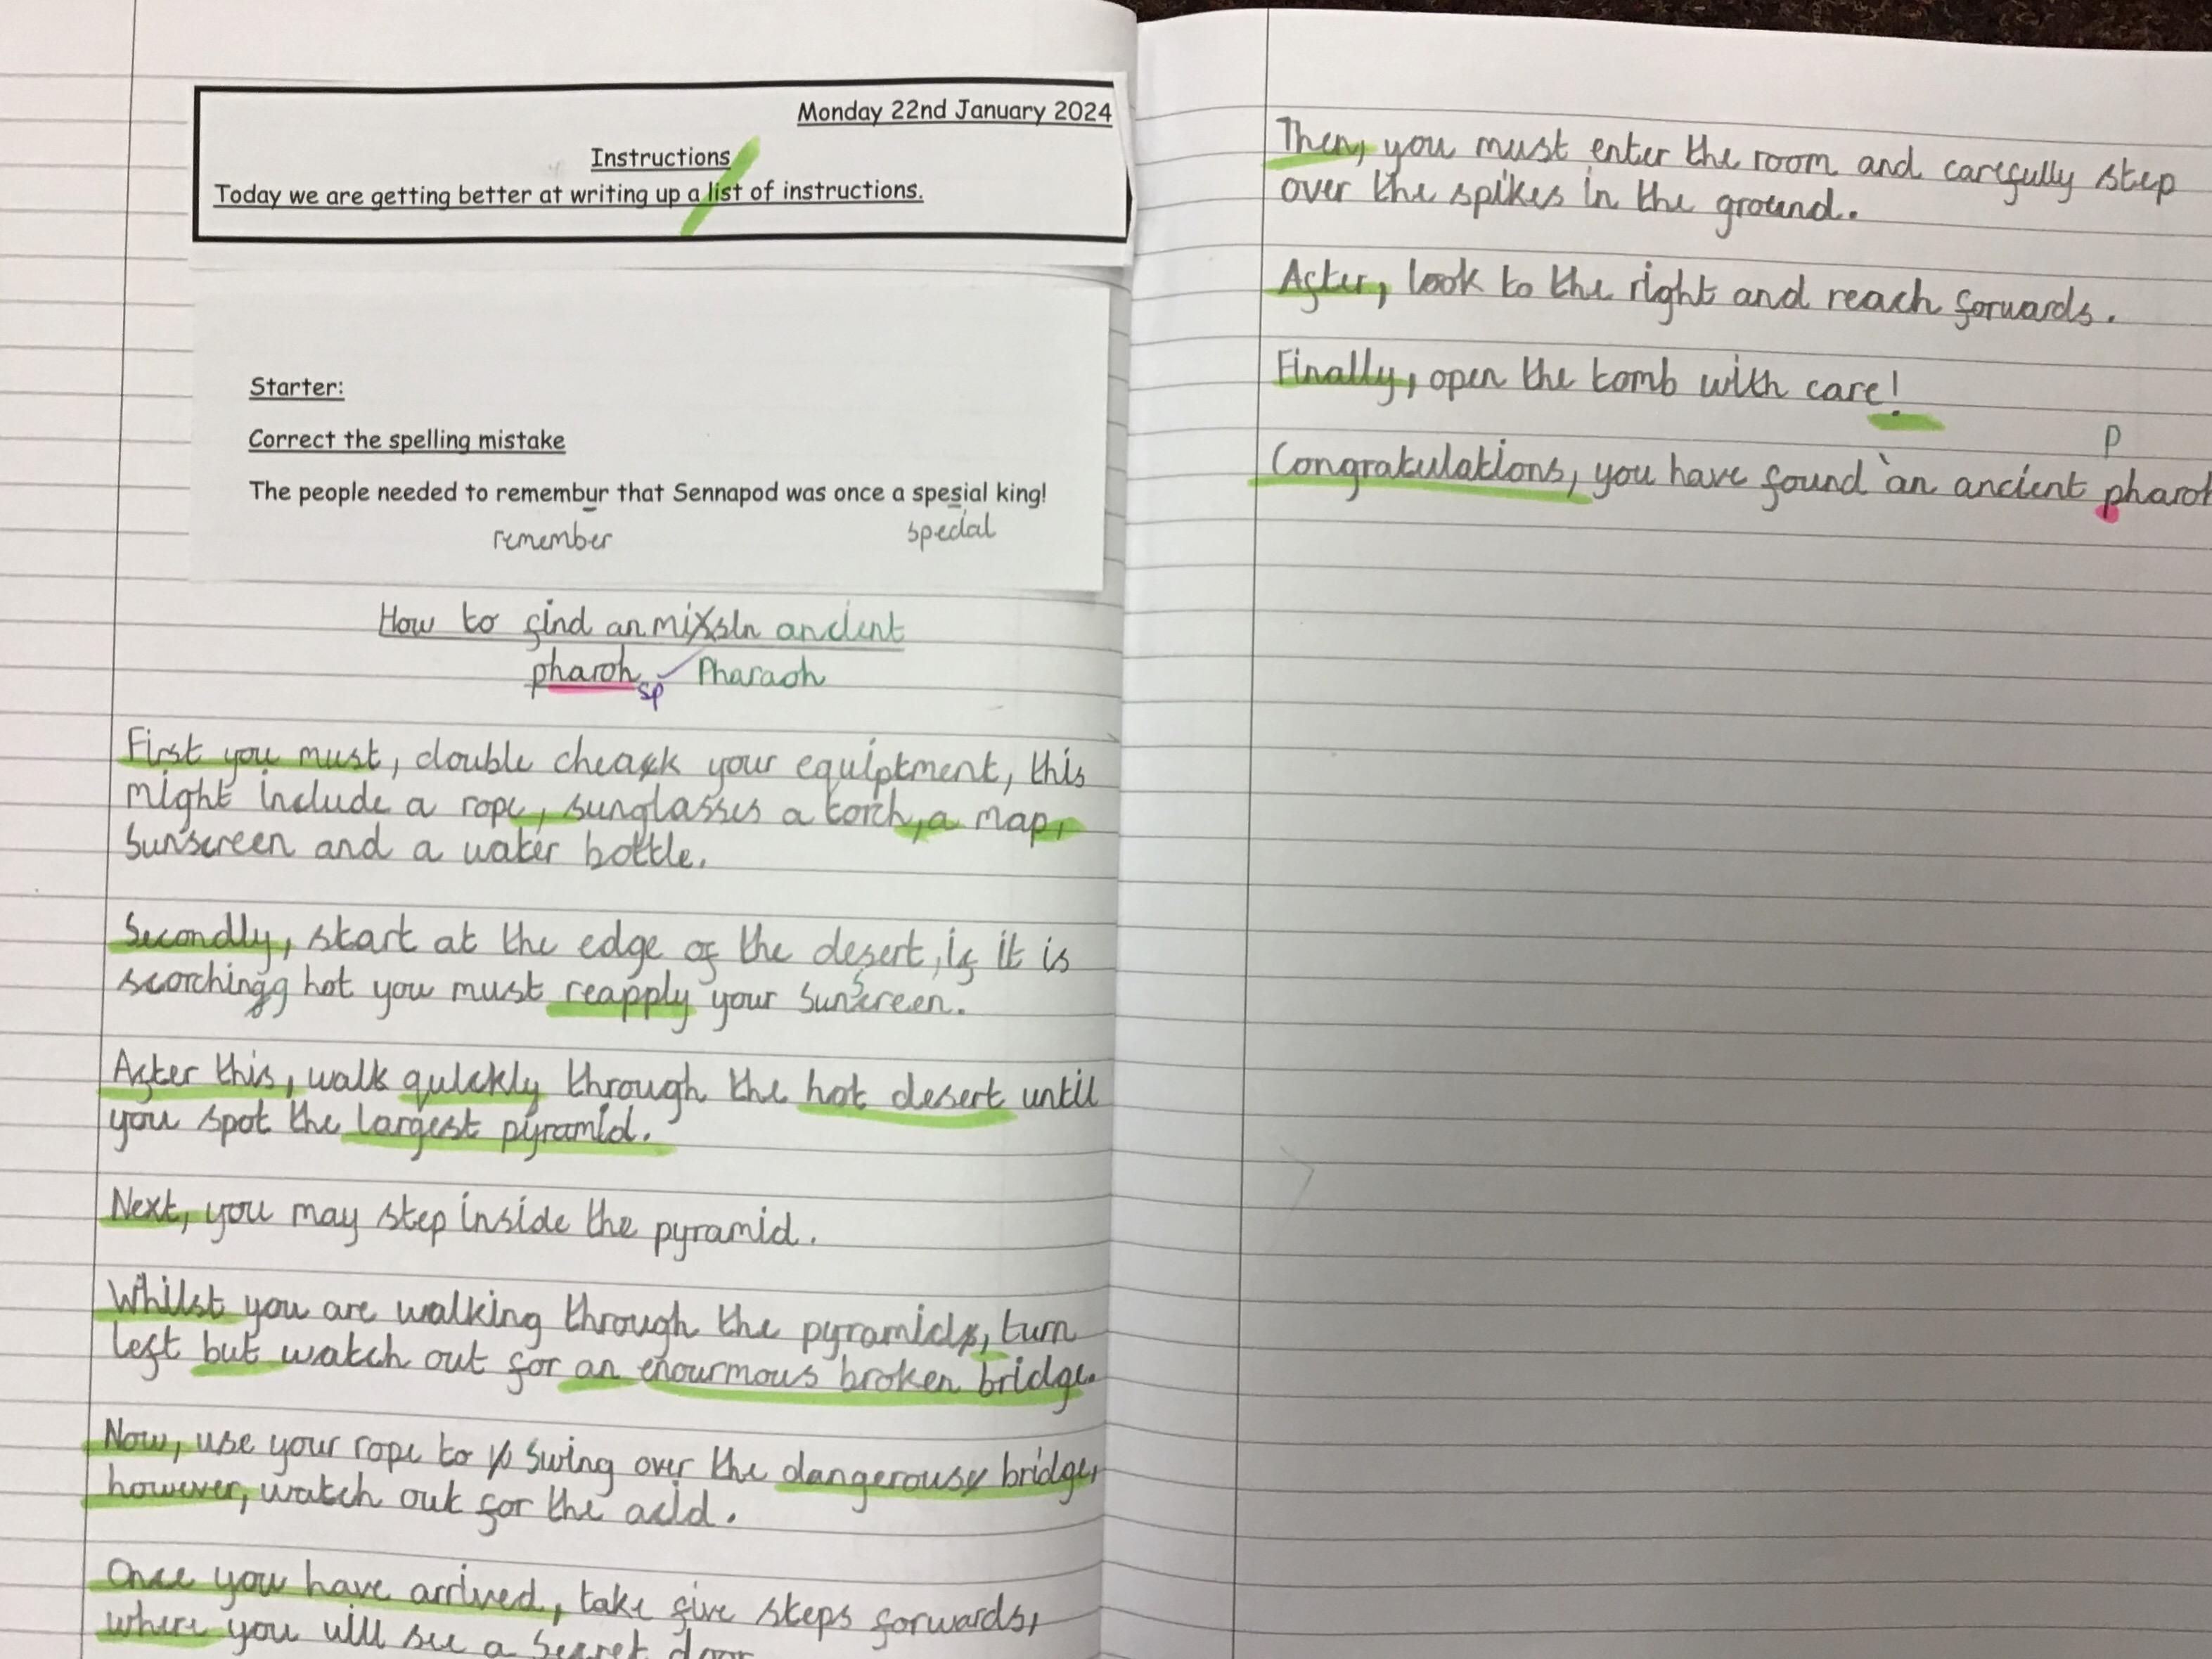 Monday 22nd January 2024
Instructions
Today we are getting better at writing up a list of instructions.
Starter:
Correct the spelling mistake
The people needed to remembur that Sennapod was once a spesial king!
remember special
How to find an ancient
pharoh sp Pharaoh
First you must, double cheack your equiptment, this
might include a rope, sunglasses a torch, a map,
sunscreen and a water bottle.
Secondly, start at the edge of the desert, if it is
scorching hot you must reapply your sunscreen.
After this, walk quickly through the hot desert until
you spot the largest pyramid.
Next, you may step inside the pyramid.
Whilst you are walking through the pyramid, turn
left but watch out for an enourmous broken bridge.
Now, use your rope to swing over the dangerous bridge,
however, watch out for the acid.
Once you have arrived, take five steps forwards,
where you will see a secret door
Then, you must enter the room and carefully step
over the spikes in the ground.
After, look to the right and reach forwards.
Finally, open the tomb with care!
P
Congratulations, you have found an ancient